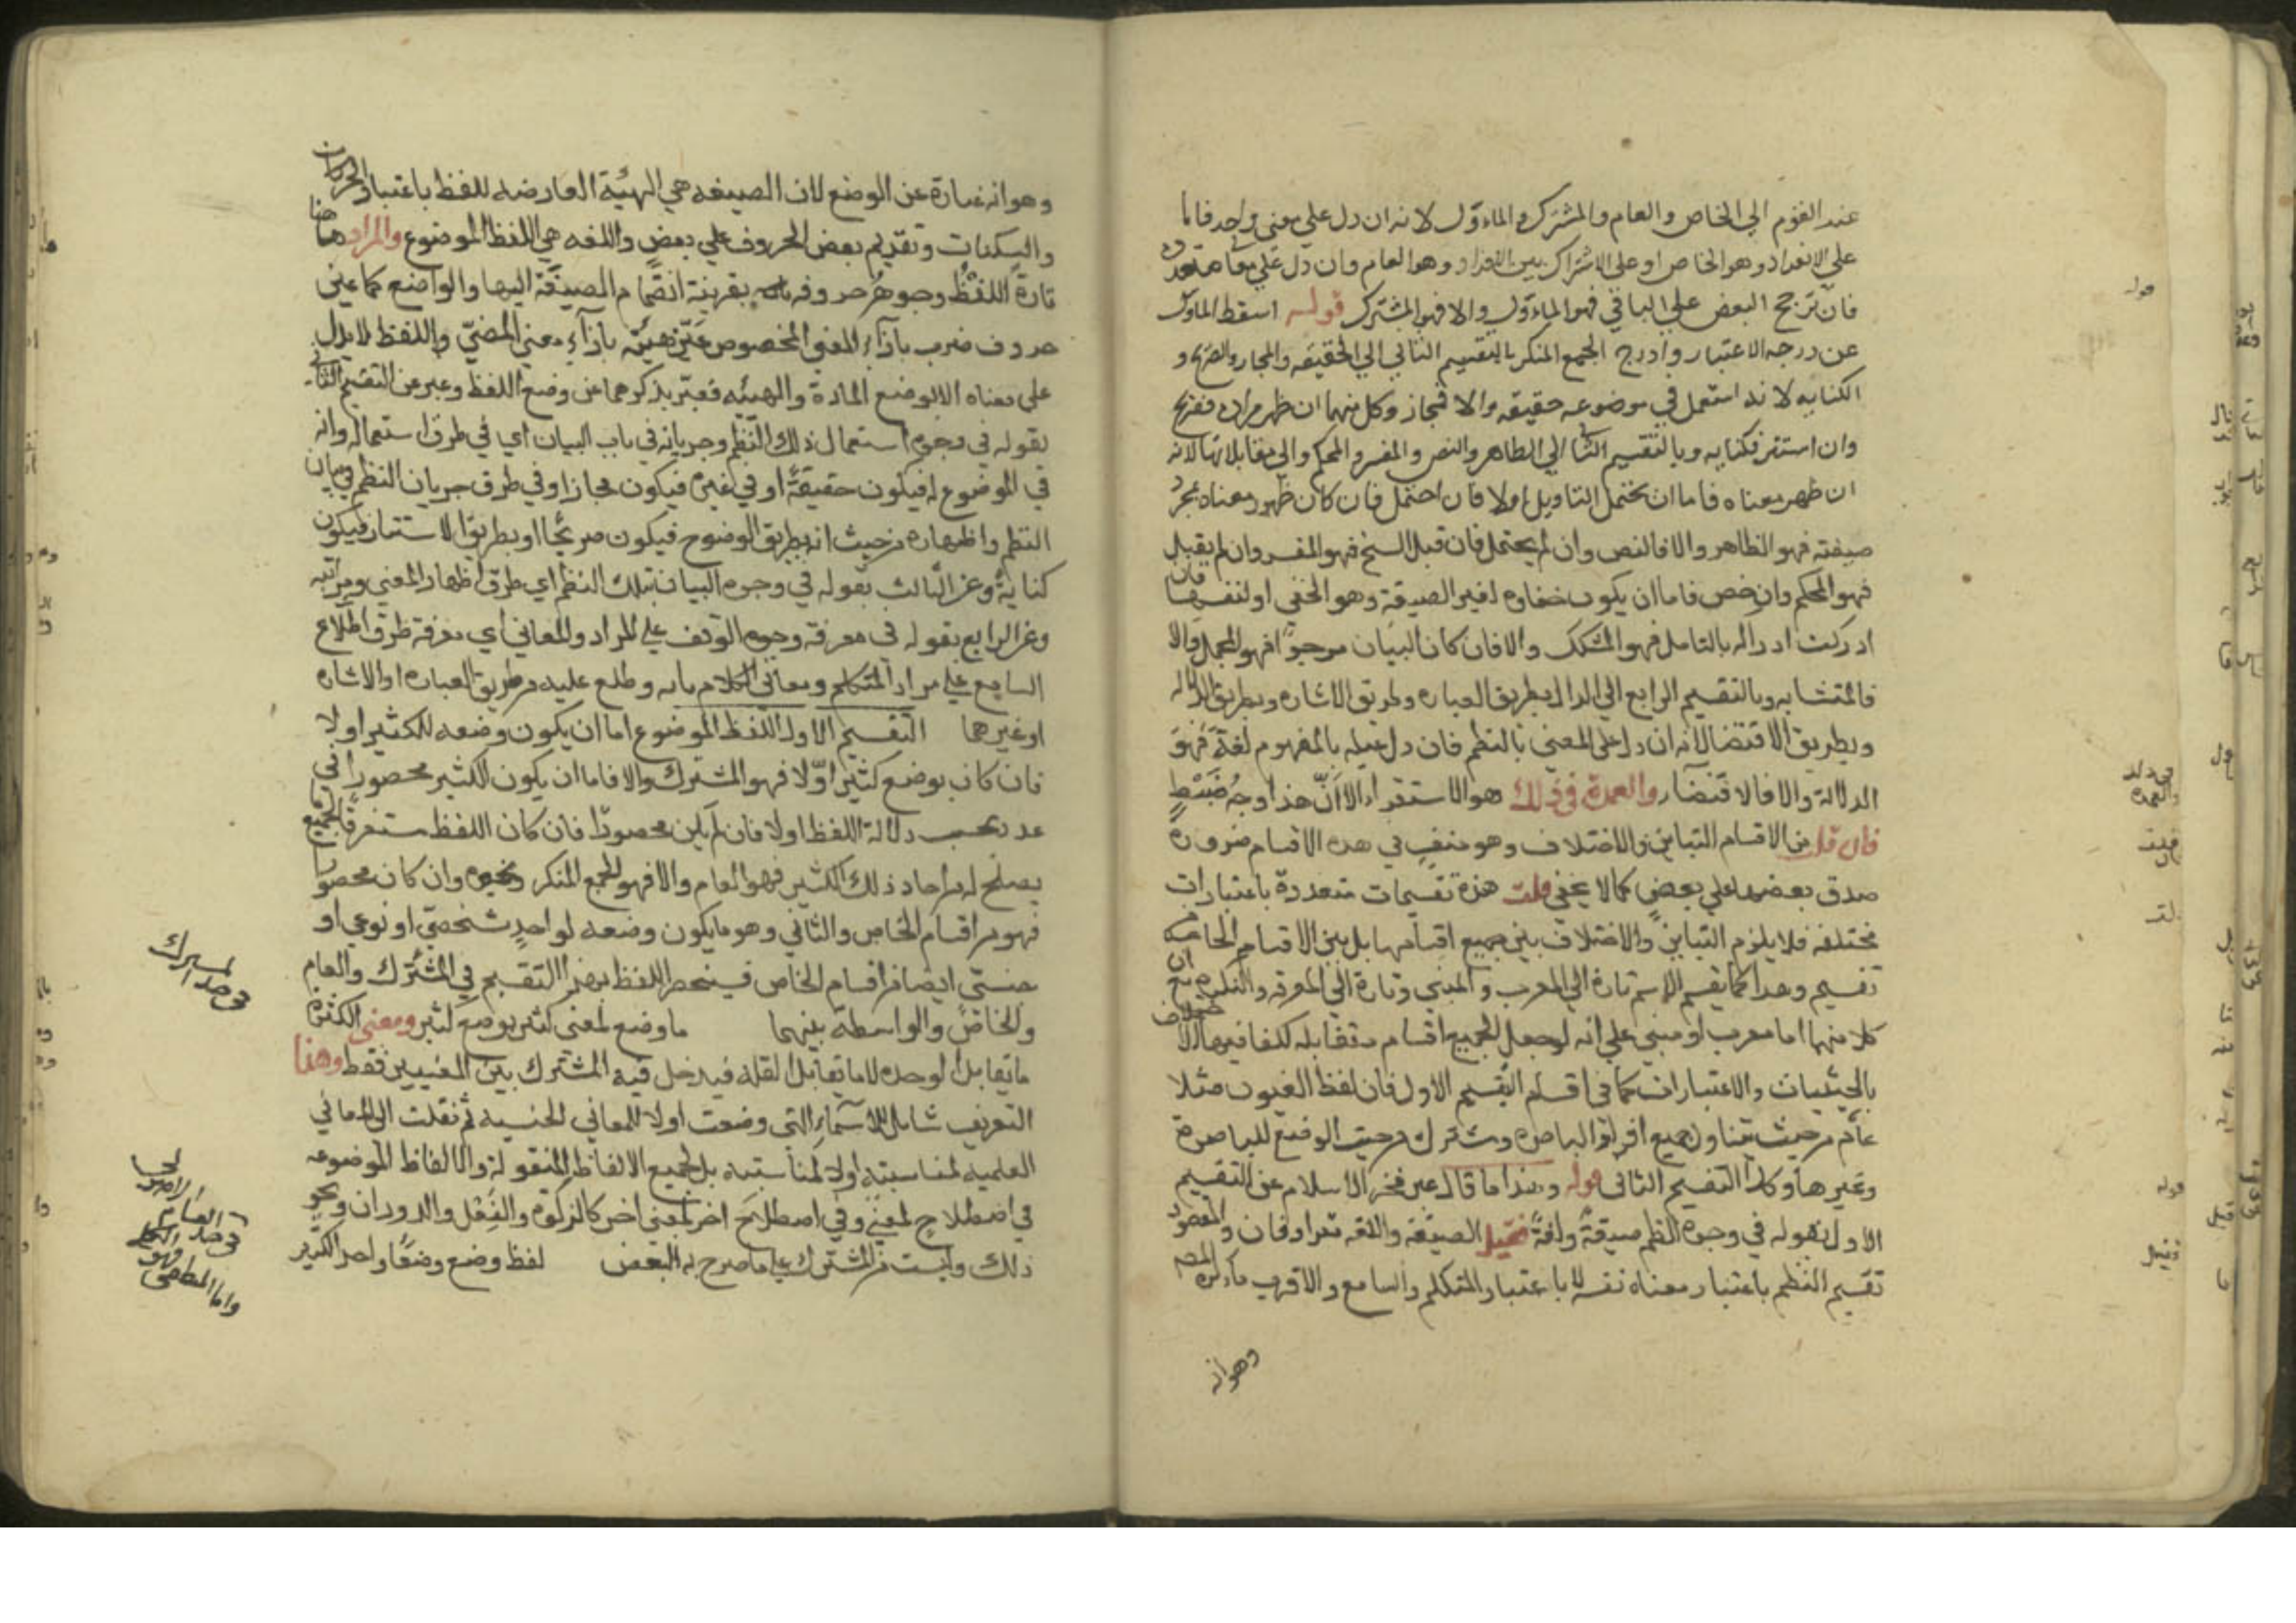 عند القوم الي الخاص والعام والمشترك والماءول لانه ان دل علي معني واحد فاما
علي الانفراد وهو الخاص او علي الاشتراك بين الافراد وهو العام وان دل علي معان متعددة
فان ترجح البعض علي الباقي فهو الماءول والا فهو المشترك قوله اسقط الماول
عن درجه الاعتبار وادرج الجمع المنكر بالتقسيم الثاني الي الحقيقه والمجاز والصريح و
الكنايه لانه استعمل في موضوعه حقيقه والا فمجاز وكل منهما ان ظهر مراده فصريح
وان استتر فكنايه وبالتقسيم الثا الي الظاهر والنص والمفسر والمحكم والي مقابلاتها لانه
ان ظهر معناه فاما ان يحتمل التاويل اولا فان احتمل فان كان ظهور معناه بمجرد
صيغته فهو الظاهر والا فالنص وان لم يحتمل فان قبل النسخ فهو المفسر وان لم يقبل
فهو المحكم وان خفي فاما ان يكون خفاوه لغير الصيغة وهو الخفي او لنفسها فان
ادركت ادراكه بالتامل فهو المشكل والا فان كان البيان مرجوا فهو المجمل والا
فالمتشابه وبالتقسيم الرابع الي الدال بطريق العباره وطريق الاشاره وبطريق الدلاله
وبطريق الاقتضا لانه ان دل علي المعني بالنظم فان دل عليه بالمفهوم لغة فهو
الدلالة والا فالاقتضآ والعمدة في ذلك هو الاستقراء الا ان هذا وجه ضبط
فان قلت من الاقسام التباين والاختلاف وهو منتف في هده الاقسام ضرورة
صدق بعضها علي بعض كما لا يخفي قلت هذه تقسيمات متعددة باعتبارات
مختلفه فلا يلزم التباين والاختلاف بين جميع اقسامها بل بين الاقسام الخارجه من
تقسيم وهدا كما يقسم الاسم تارة الي المعرب والمبني وتارة الي المعرفه والنكره مع ان
كلا منهما اما معرب او مبني علي انه لو جعل الجميع اقسام متقابله لكفا فيها الاختلاف
بالحيثيات والاعتبارات كما في اقسام التقسيم الاول فان لفظ العيون مثلا
عام من حيث يتناول جميع افراد الباصره ومشترك من حيث الوضع للباصرة
وغيرها وكذا التقسيم الثاني قوله وهذا ما قال عبر فخر الاسلام عن التقسيم
الاول بقوله في وجوه النظم صيغة ولغة فقيل الصيغة واللغه مترادفان والمقصود
تقسيم النظم باعتبار معناه نفسه لا باعتبار المتكلم والسامع والاقرب ما ذكره المصـ
وهو انه
وهو انه عبارة عن الوضع لان الصيغه هي الهيئة العارضه للفظ باعتبار الحركات
والسكنات وتقديم بعض الحروف علي بعض واللغه هي اللفظ الموضوع والمراد هاهنا
مادة اللفظ وجوهر حروفه بقرينة انضمام الصيغة اليها والواضع كما عين
حروف ضرب بازآء المعني المخصوص عين هيئته بازآء معني المضي واللفظ لا يدل
علي معناه الا بوضع المادة والهيئه فعبر بذكرهما عن وضع اللفظ وعبر عن التقسيم الثاني
بقوله في وجوه استعمال ذلك النظم وجريانه في باب البيان اي في طرق استعماله وانه
في الموضوع له فيكون حقيقة او في غيره فيكون مجازا وفي طرق جريان النظم في بيان
النظم واظهاره من حيث انه بطريق الوضوح فيكون صريحا او بطريق الاستتار فيكون
كناية وعن الثالث بقوله في وجوه البيان بذلك النظم اي طرق اظهار المعني ومراتبه
وعن الرابع بقوله في معرفة وجوه الوقف علي المراد والمعاني اي معرفة طرق اطلاع
السامع علي مراد المتكلم ومعاني الكلام بانه يطلع عليه من طريق العباره او الاشاره
او غيرهما التقسيم الاول اللفظ الموضوع اما ان يكون وضعه للكثير او لا
فان كان بوضع كثير اولا فهو المشترك والا فاما ان يكون الكثير محصورا في
عدد بحسب دلالة اللفظ اولا فان لم يكن محصورا فان كان اللفظ مستغرقا لجميع
يصلح له من احاد ذلك الكثير فهو العام والا فهو الجمع المنكر ونحوه وان كان محصورا
فهو من اقسام الخاص والثاني وهو ما يكون وضعه لواحد شخصي او نوعي او
جنسي ايضا من اقسام الخاص فينحصر اللفظ بهذا التقسيم في المشترك والعام
والخاص والواسطة بينهما ما وضع لمعني كثير بوضع كثير ومعني الكثرة
ما يقابل الوحده لا ما يقابل القله فيدخل فيه المشترك بين المعنيين فقط وهذا
التعريف شامل للاسماء التي وضعت اولا للمعاني الجنسيه ثم نقلت الي المعاني
العلميه لمناسبته اولا لمناسبته بل لجميع الالفاظ المنقوله والالفاظ الموضوعه
في اصطلاح لمعني وفي اصطلاح اخر لمعني اخر كالزكوة والفعل والدوران ونحو
ذلك وليست من المشترك علي ما صرح به البعض لفظ وضع وضعا واحد الكثير